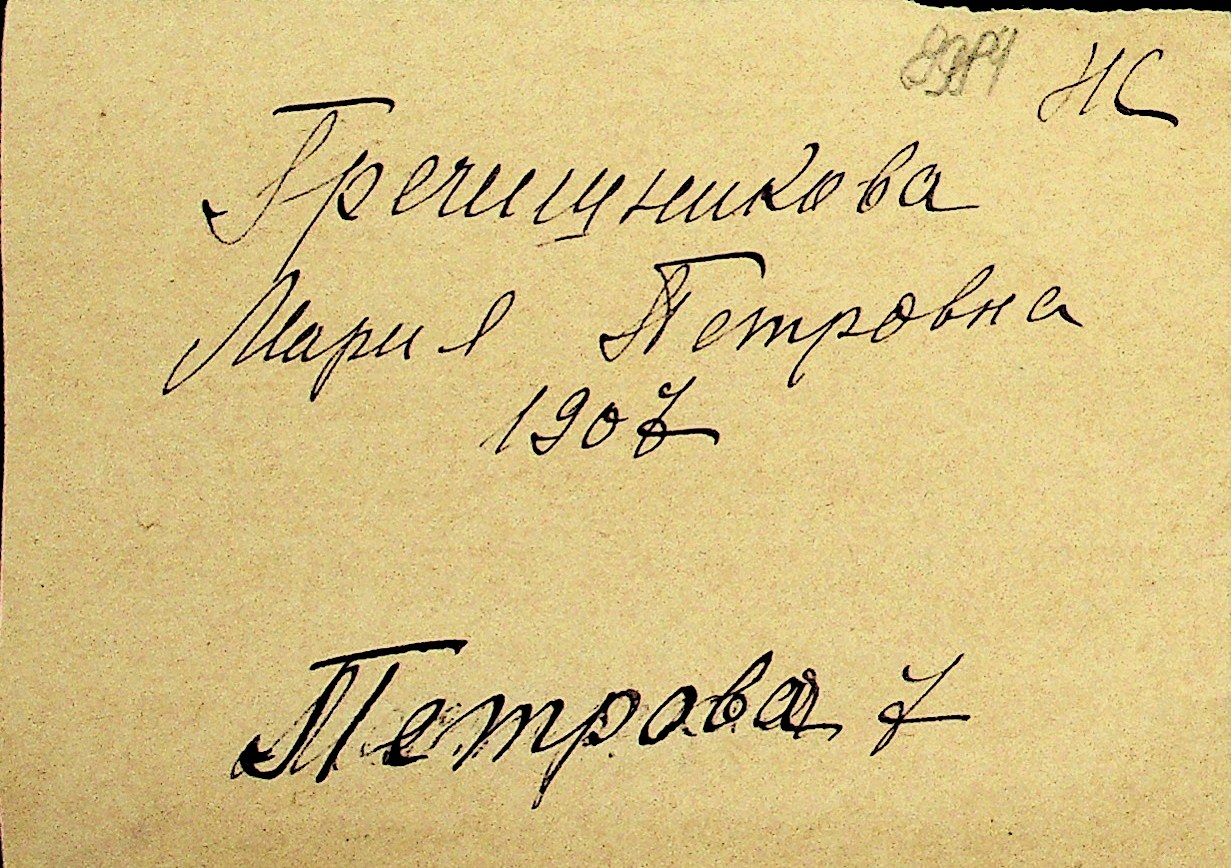 НС
Гречищникова
Мария Петровна
1907
Петрова 7